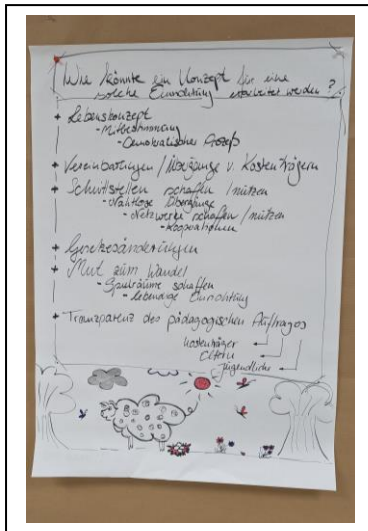 Wie könnte ein Konzept für eine
solche Einrichtung erarbeitet werden?
+ Lebenskonzept
- Mitbestimmung
- Demokratischer Prozeß
+ Vereinbarungen / Übergänge v. Kostenträgern
+ Schnittstellen schaffen / nützen
- Nahtlose Übergänge
- Netzwerke schaffen / nützen
- Kooperationen
+ Gesetzesänderungen
+ Mut zum Wandel
- Spielräume schaffen
- lebendige Einrichtung
+ Transparenz des pädagogischen Auftrages
Kostenträger
Eltern
Jugendliche